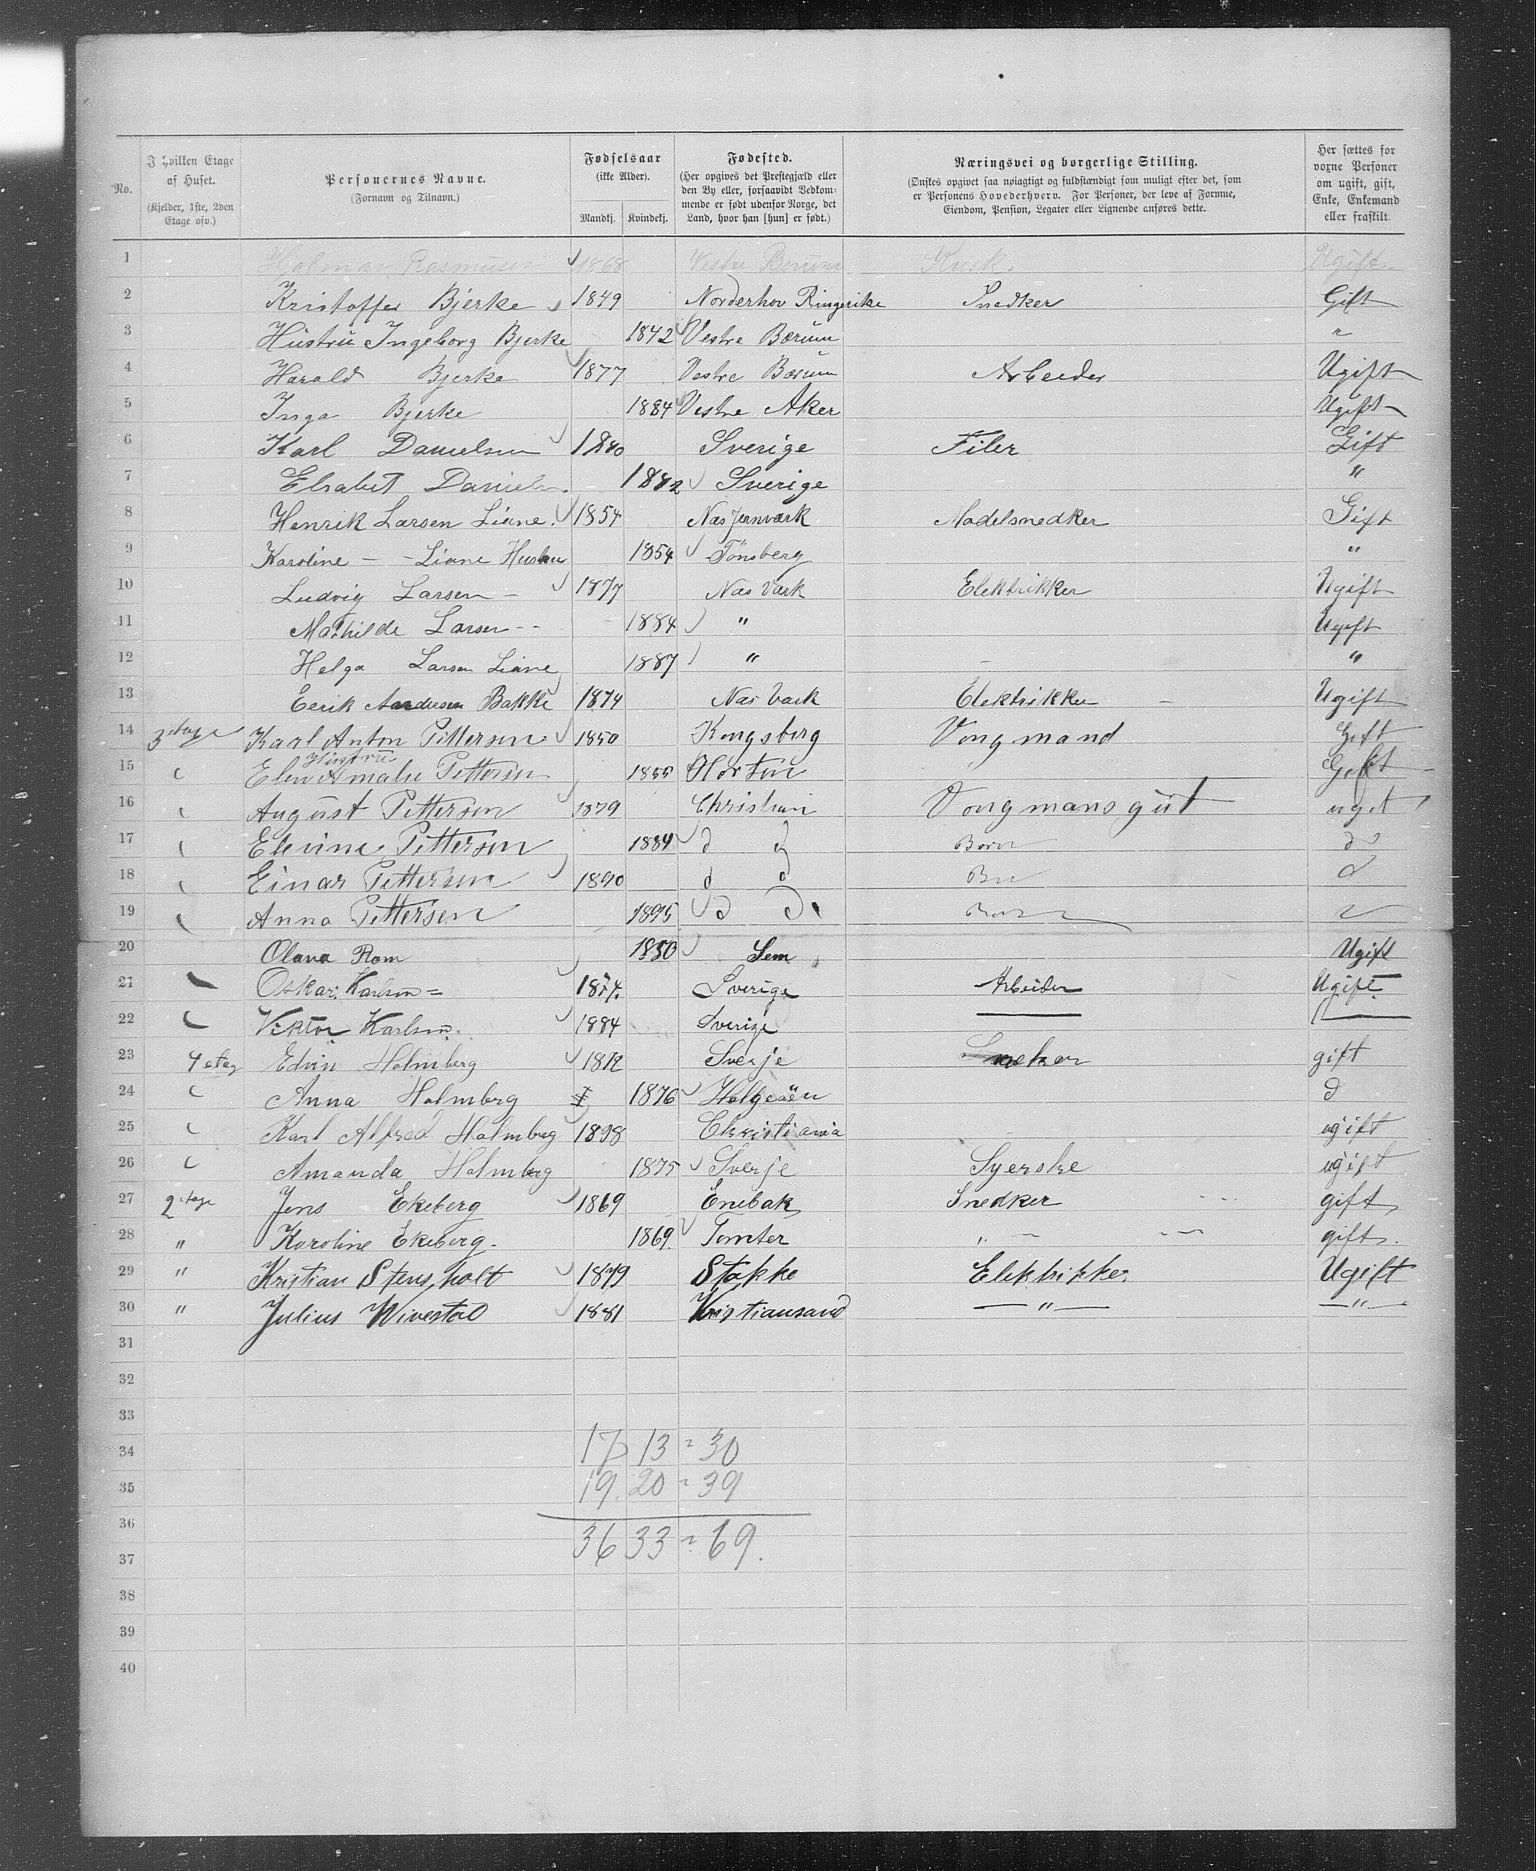 No.
I hvilken Etage af Huset. (Kjelder, 1ste, 2den Etage osv.)
Personernes Navne. (Fornavn og Tilnavn.)
Fødselsaar (ikke Alder). Mandkj. Kvindekj.
Fødested. (Her opgives det Prestegjæld eller den By eller, forsaavidt Vedkommende er født udenfor Norge, det Land, hvor han [hun] er født.)
Næringsvei og borgerlige Stilling. (Ønskes opgivet saa nøiagtigt og fuldstændigt som muligt efter det, som er Personens Hovederhverv. For Personer, der leve af Formue, Eiendom, Pension, Legater eller Lignende anføres dette.
Her sættes for voxne Personer om ugift, gift, Enke, Enkemand eller fraskilt.
1 Halmar Rasmusen 1868 Vestre Berum Kusk. Ugift
2 Kristoffer Bjerke 1849 Norderhov Ringerike Snedker Gift
3 Hustru Ingeborg Bjerke 1842 Vestre Bærum "
4 Harald Bjerke 1877 Vestre Bærum Arbeider Ugift
5 Inga Bjerke 1884 Vestre Aker Ugift
6 Karl Danielsen 1840 Sverige Filer Gift
7 Elsabet 1842 Sverige "
8 Henrik Larsen Liane. 1854 Nas Jernværk Modelsnedker Gift
9 Karoline — - Liane Hustru 1854 Tönsberg "
10 Ludvig Larsen - 1877 Nas Værk Elektrikker Ugift
11 Mathilde Larsen - - 1884 " Ugift
12 Helga Larsen Liane 1887 " "
13 Eerik Andersen Bakke 1874 Nas Værk Elektrikker Ugift
14 3 etage Karl Anton Pettersen 1850 Kongsberg Vongmand Gift
15 Hustru Elen Amalie Pettersen 1855 Horten Gift
16 August Pettersen 1879 Christiani Vongmansgut uget
17 Elevine Pettersen 1884 d d Born d
18 Einar Pettersen 1890 d d d
19 Anna Pettersen 1895 d d
20 Olava Rom 1850 Sem Ugift
21 Oskar Karlson = 1874. Sverige Arbeider Ugift
22 Viktor Karlson. 1884 Sverige
23 4 etag Edvin Holmberg 1872 Sverje gift
24 Anna Holmberg 1876 d
25 Karl Alfred Holmberg 1898 Christiania ugift
26 Amanda Holmberg 1875 Sverje Syerske ugift
27 2 etage Jens Ekeberg 1869 Enebak Snedker gift
28 " Karoline Ekeberg. 1869. Tomter " gift.
29 " Kristian Stensholt 1879 Stokke Elektrikker Ugift
30 " Julius Wivestad 1881 Kristiansand — " — — " —
31
32
33
34 17 13 = 30
35 19. 20 = 39
36 36 33 = 69.
37
38
39
40